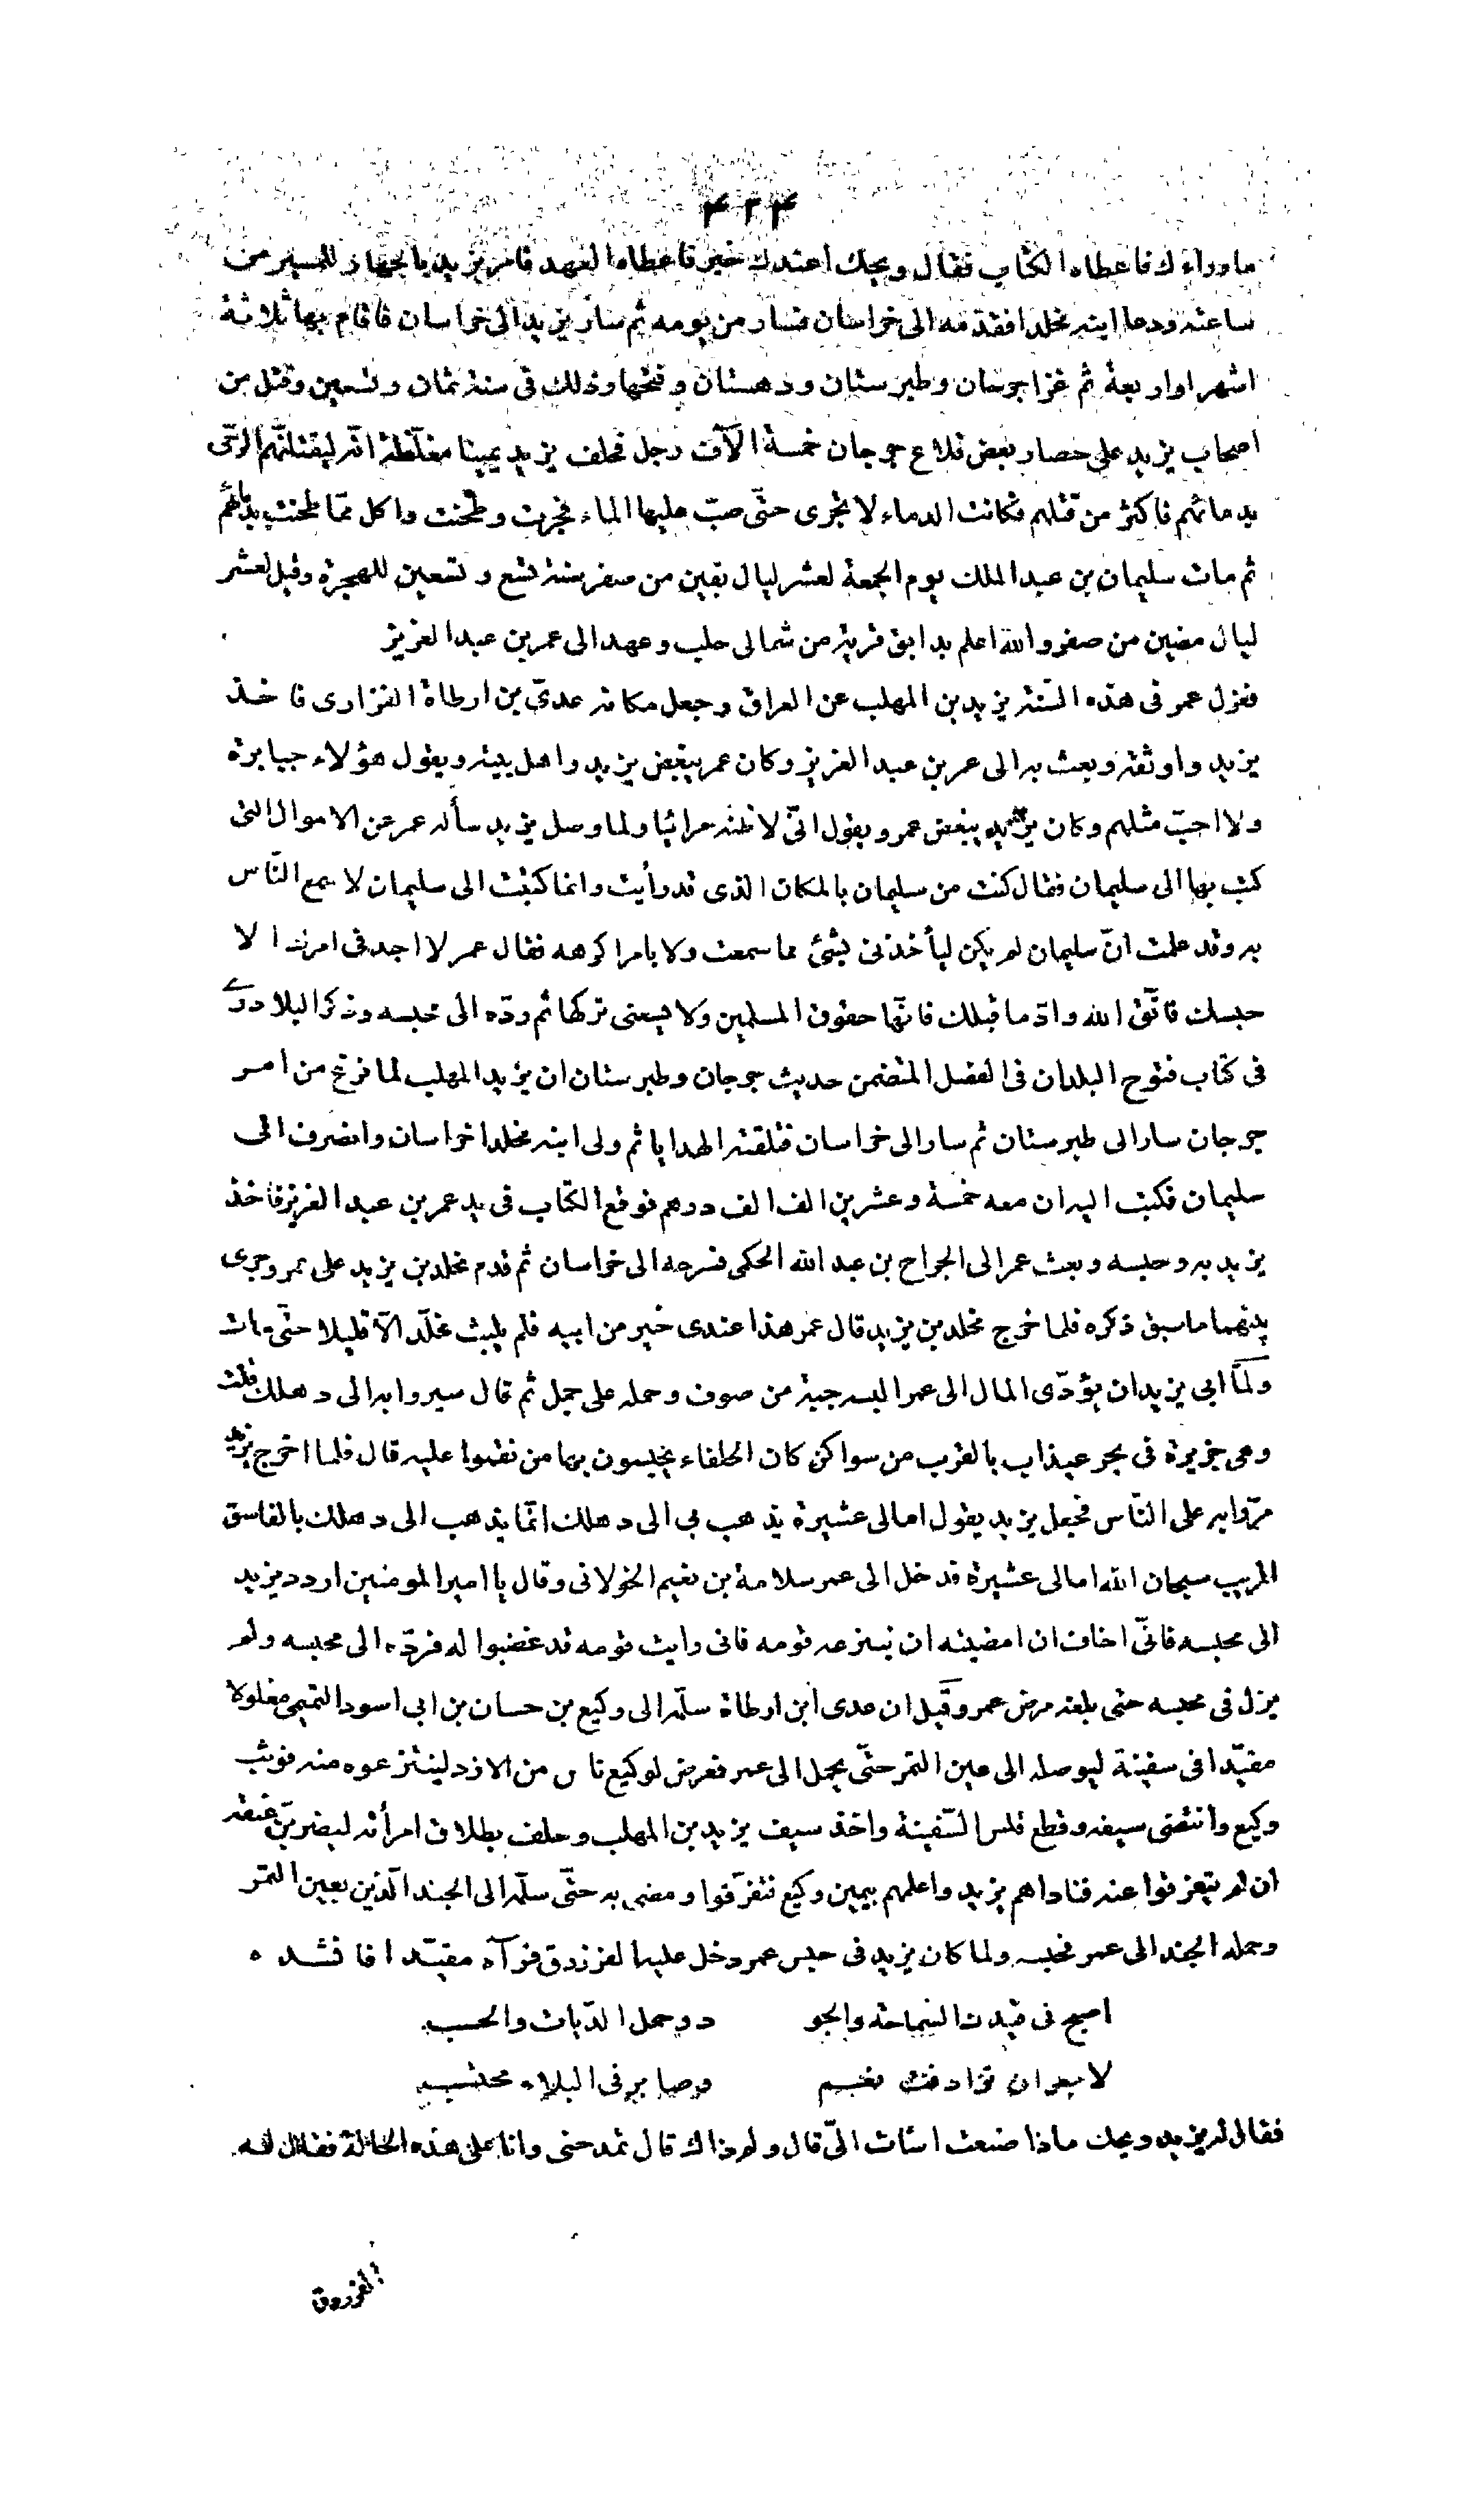 ۴۲۴
ما وراءك فاعطاه الكتاب فقال ويحك اعندك خير فاعطاه العهد فامر يزيد بالجهاز للمسير من
ساعته ودعا ابنه مخلدا فقدّمه الى خراسان فسار من يومه ثم سار يزيد الى خراسان فاقام بها ثلاثة
اشهر او اربعة ثم غزا جرجان وطبرستان ودهستان وفتحها وذلك فى سنة ثمان وتسعين وقتل من
اصحاب يزيد على حصار بعض قلاع جرجان خمسة الآف رجل فحلف يزيد يمينا مغلّظة انّه ليقتلنّهم الرّحى
بدمائهم فاكثر من قتلهم فكانت الدماء لا تجرى حتّى صبّ عليها الماء فجرت وطحنت واكل ممّا طحنت بدمائهم
ثم مات سليمان بن عبد الملك يوم الجمعة لعشر ليال بقين من صفر سنة تسع وتسعين للهجرة وقيل لعشر
ليال مضين من صفر والله اعلم بدابق قرية من شمالى حلب وعهد الى عمر بن عبد العزيز
فعزل عمر فى هذه السّنة يزيد بن المهلب عن العراق وجعل مكانه عدىّ بن ارطاة الفزارى فاخذ
يزيد واوثقه وبعث به الى عمر بن عبد العزيز وكان عمر يبغض يزيد واهل بيته ويقول هؤلاء جبابرة
ولا احبّ مثلهم وكان يزيد يبغض عمر ويقول انّى لاظنه مرائيا ولما وصل يزيد سأله عمر عن الاموال التى
كتب بها الى سليمان فقال كنت من سليمان بالمكان الذى قد رأيت وانما كتبت الى سليمان لاسمع النّاس
به وقد علمت انّ سليمان لم يكن ليأخذنى بشئ مما سمعت ولا بامر اكرهه فقال عمر لا اجد فى امرك الا
حبسك فاتّق الله وادّ ما قبلك فانّها حقوق المسلمين ولا يسعنى تركها ثم ردّه الى محبسه وذكر البلادرى
فى كتاب فتوح البلدان فى الفصل المتضمن حديث جرجان وطبرستان ان يزيد المهلب لما فرغ من امر
جرجان سار الى طبرستان ثم سار الى خراسان فتلقته الهدايا ثم ولى ابنه مخلدا خراسان وانصرف الى
سليمان فكتب اليه ان معه خمسة وعشرين الف الف درهم فوقع الكتاب فى يد عمر بن عبد العزيز فاخذ
يزيد به وحبسه وبعث عمر الى الجراح بن عبد الله الحكمى فسرحه الى خراسان ثم قدم مخلد بن يزيد على عمر وجرى
بينهما ما سبق ذكره فلما خرج مخلد بن يزيد قال عمر هذا عندى خير من ابيه فلم يلبث مخلّد الّا قليلا حتّى مات
ولمّا ابى يزيد ان يؤدّى المال الى عمر البسه جبة من صوف وحمله على جمل ثم قال سيروا به الى دهلك قلت
وهى جزيرة فى بحر عيذاب بالقرب من سواكن كان الخلفاء يحبسون بها من نقموا عليه قال فلما اخرج يزيد
مرّوا به على النّاس فجعل يزيد يقول امالى عشيرة يذهب بى الى دهلك انّما يذهب الى دهلك بالفاسق
المريب سبحان الله امالى عشيرة فدخل الى عمر سلامة بن نعيم الخولانى وقال يا امير المومنين اردد يزيد
الى محبسه فانّى اخاف ان امضيته ان ينتزعه قومه فانى رايت قومه قد غضبوا له فردّه الى محبسه ولم
يزل فى محبسه حتى بلغه مرض عمر وقيل ان عدى ابن ارطاة سلّمه الى وكيع بن حسان بن ابى اسود التميمى مغلولا
مقيّدا فى سفينة ليوصله الى عين التمر حتّى يحمل الى عمر فعرض لوكيع ناس من الازد لينتزعوه منه فوثب
وكيع وانتضى سيفه وقطع قلس السّفينة واخذ سيف يزيد بن المهلب وحلف بطلاق امرأته ليضربنّ عنقه
ان لم يتفرقوا عنه فناداهم يزيد واعلمهم بيمين وكيع فتفرّقوا ومضى به حتّى سلّمه الى الجند الّذين بعين التمر
وحمله الجند الى عمر فحبسه ولما كان يزيد فى حبس عمر دخل عليه الفرزدق فرآه مقيّدا فانشده
اصبح فى قيدك السّماحة والجو دوحمل الدّيات والحسب
لا بطر ان ترادفت نعم وصابر فى البلاء محتسب
فقال له يزيد ويحك ماذا صنعت اسات الىّ قال ولم ذاك قال تمدحنى وانا على هذه الحالة فقال له
الفرزدق